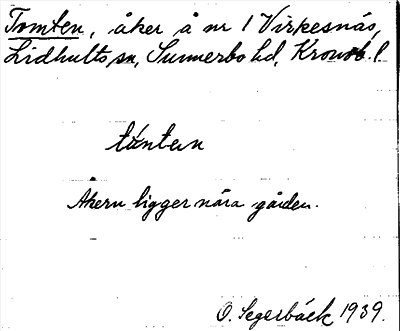 Tomten, åker å nr 1 Virkesnäs,
Lidhults sn, Sunnerbo hd, Kronob. l.
Åkern ligger nära gården.
O. Segerbäck 1939.